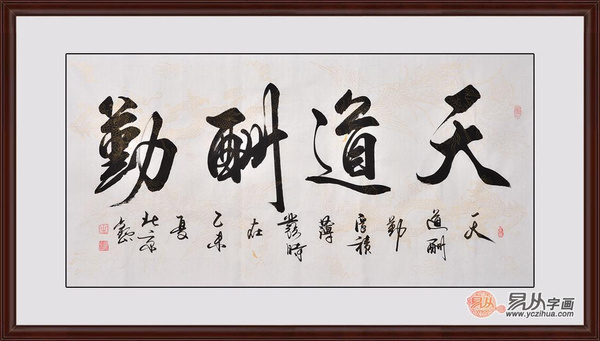 天道酬勤
天道酬勤厚積薄發時在乙未夏北京
易从字画
www.yczihua.com